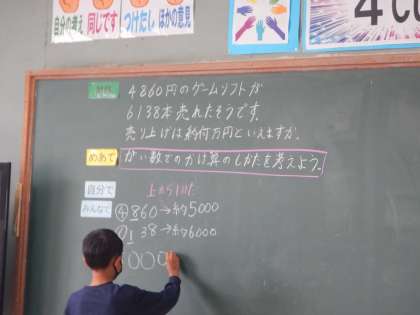 自分の考え
同じです
つけたし
ほかの意見
4860円のゲームソフトが
6138本売れたそうです。
売り上げは約何万円といえますか。
めあて
がい数でのかけ算のしかたを考えよう。
自分で
上から1けた
みんなで
④860→約5000
⑥138→約6000
000